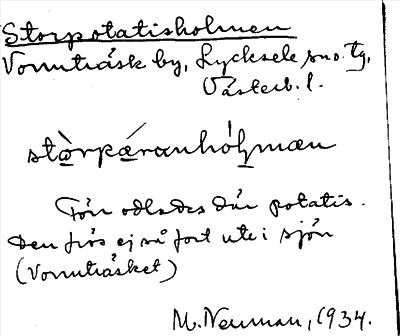 Storpotatisholmen
Vormträsk by, Lycksele sn o. tg,
Västerb. l.
stòrpä́ranhólmæn
Förr odlades där potatis.
Den frös ej så fort ute i sjön
(Vormträsket)
M. Neuman, 1934.